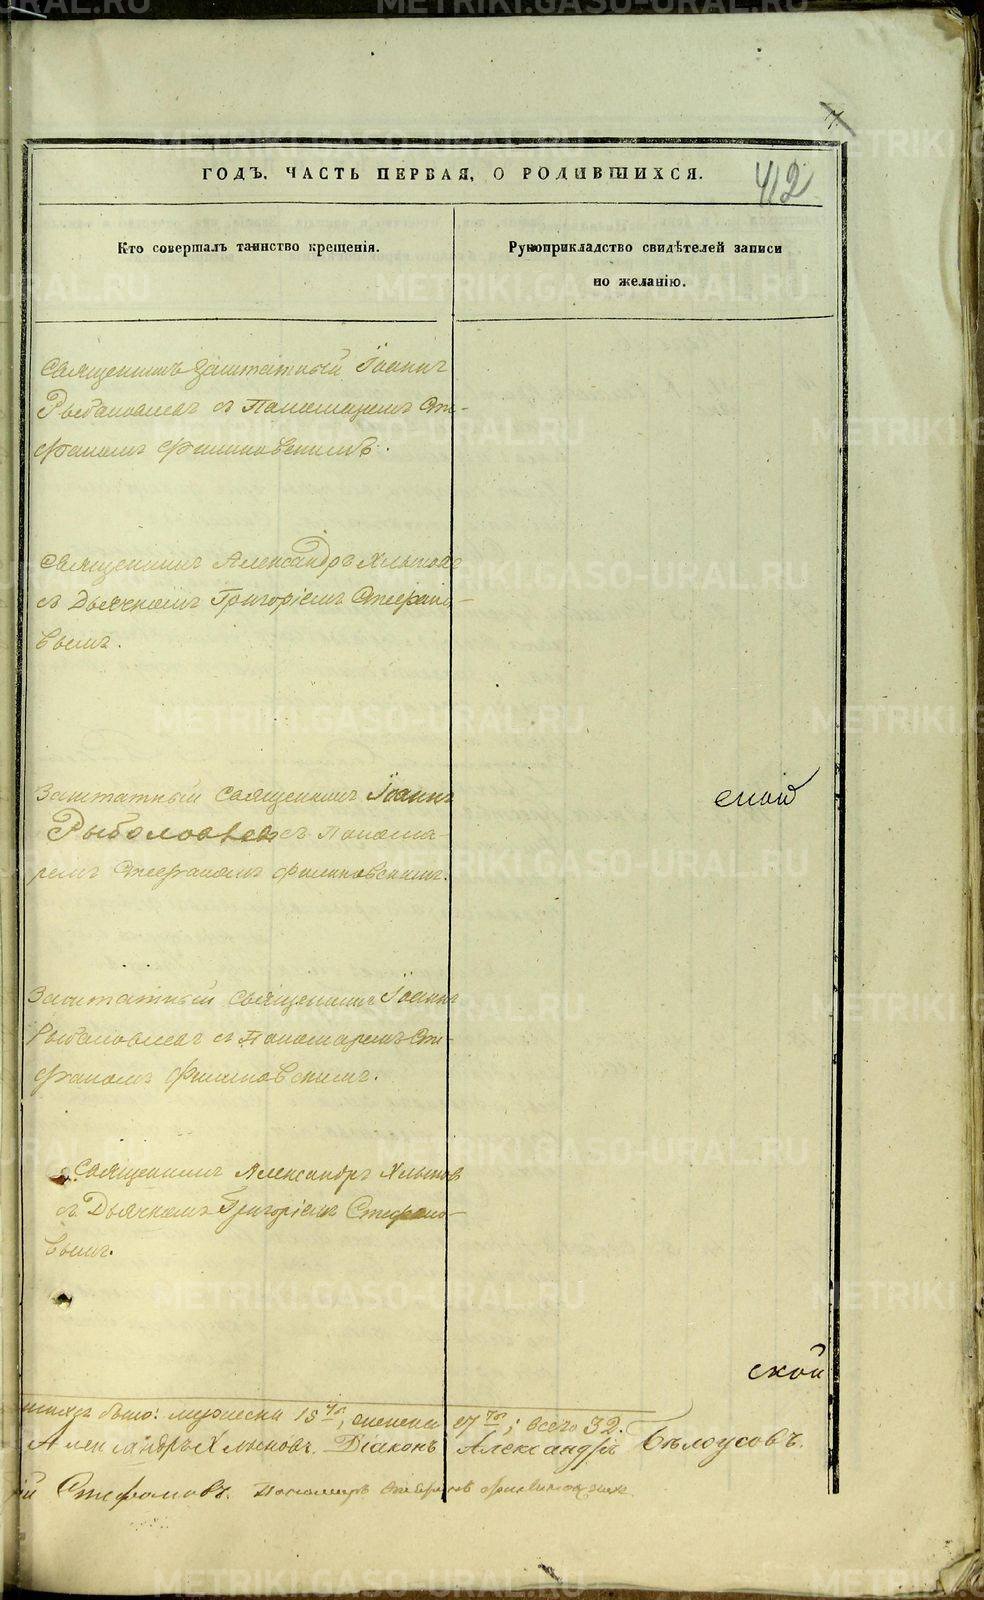 7
ГОДЪ, ЧАСТЬ ПЕРВАЯ, О РОДИВШИХСЯ.
412
Кто совершалъ таинство крещенія.
Рукоприкладство свидѣтелей записи
по желанію.
Священникъ Заштатный Іоаннъ
Рыболовлевъ съ Пономаремъ Сте-
фаномъ Филиновскимъ.
Священникъ Александръ Хлыновъ
съ Дьячкомъ Григоріемъ Стефано-
вымъ.
Заштатный Священникъ Іоаннъ
Рыболовлевъ съ Понома-
ремъ Стефаномъ Филиновскимъ.
Заштатный Священникъ Іоаннъ
Рыболовлевъ съ Пономаремъ Сте-
фаномъ Филиновскимъ.
Священникъ Александръ Хлыновъ
съ Дьячкомъ Григоріемъ Стефано-
вымъ.
ской
было: мужеска 15, женска 17; всего 32.
Александръ Хлыновъ. Діаконъ Александръ Бѣлоусовъ.
Стефановъ. Пономарь Стефанъ
METRIKI.GASO-URAL.RU